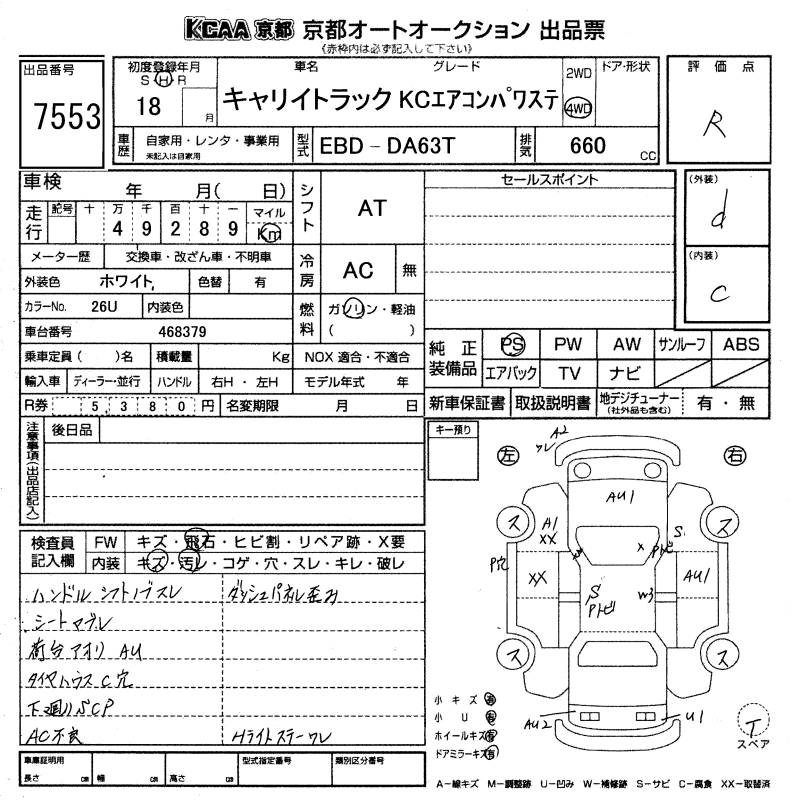 KCAA 京都 京都オートオークション 出品票
《赤枠内は必ず記入して下さい》
出品番号
7553
初度登録年月
S H R
18
月
車名
グレード
キャリイトラック KCエアコンパワステ
2WD
4WD
ドア・形状
評価点
R
車歴
自家用・レンタ・事業用
未記入は自家用
型式
EBD-DA63T
排気
660
CC
車検
年 月( 日)
走行
記号 十 万 千 百 十 一 マイル
4 9 2 8 9 Km
メーター歴
交換車・改ざん車・不明車
外装色
ホワイト,
色替
有
カラーNo.
26U
内装色
車台番号
468379
乗車定員( )名
積載量
Kg
輸入車
ディーラー・並行
ハンドル
右H・左H
R券
5,380円
名変期限
月 日
シフト
AT
冷房
AC
無
燃料
ガソリン・軽油
( )
NOX 適合・不適合
モデル年式 年
セールスポイント
(外装)
d
(内装)
C
純正装備品
PS PW AW サンルーフ ABS
エアバック TV ナビ
新車保証書
取扱説明書
地デジチューナー
(社外品も含む)
有・無
注意事項(出品店記入)
後日品
キー預り
検査員記入欄
FW
キズ・飛石・ヒビ割・リペア跡・X要
内装
キズ・汚レ・コゲ・穴・スレ・キレ・破レ
ハンドル シフトノブスレ
ダッシュパネル歪み
シートヤブレ
荷台アオリ AU
タイヤハウス C穴
下廻りSCP
AC不良
Hライトステーワレ
左
右
A2
ワレ
AU1
A1
XX
S
Pトビ
x
ス
ス
P穴
XX
AU1
S
Pトビ
W3
ス
ス
小キズ 有
小U 有
ホイールキズ 有
ドアミラーキズ 有
AU2
U1
T
スペア
車庫証明用
長さ cm
幅 cm
高さ cm
型式指定番号
類別区分番号
A−線キズ M−調整跡 U−凹み W−補修跡 S−サビ C−腐食 XX−取替済